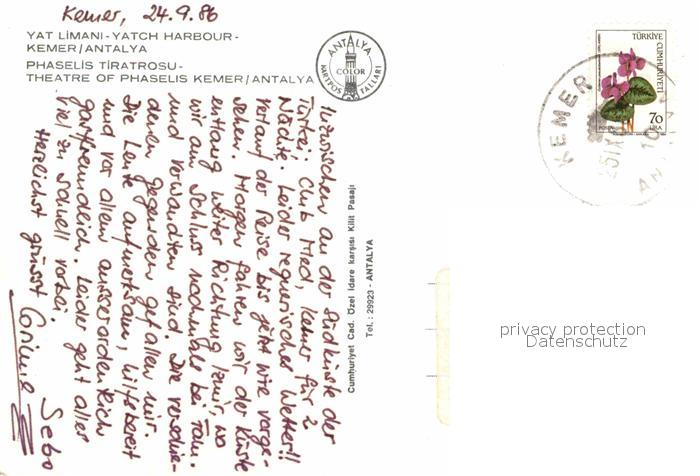 Kemer, 24.9.86
YAT LİMANI-YATCH HARBOUR-
KEMER/ANTALYA
PHASELİS TİRATROSU-
THEATRE OF PHASELIS KEMER/ANTALYA
ANTALYA
COLOR
KARTPOSTALLARI
Inzwischen an der Südküste der
Türkei Club Med, Kemer für 2
Nächte. Leider regnerisches Wetter!!
Verlauf der Reise bis jetzt wie vorge-
sehen. Morgen fahren wir der Küste
entlang weiter Richtung Izmir, wo
wir am Schluss nochmals bei Fam.
und Verwandten sind. Die verschie-
denen Gegenden gefallen mir.
Die Leute aufmerksam, hilfsbereit
und vor allem ausserordentlich
gastfreundlich. Leider geht alles
viel zu schnell vorbei.
Herzlichst grüsst
Corinne
Sebo
Cumhuriyet Cad. Özel İdare karşısı Kilit Pasajı
Tel. : 29923 - ANTALYA
TÜRKİYE
CUMHURİYETİ
70
LİRA
POSTA
KEMER
privacy protection
Datenschutz